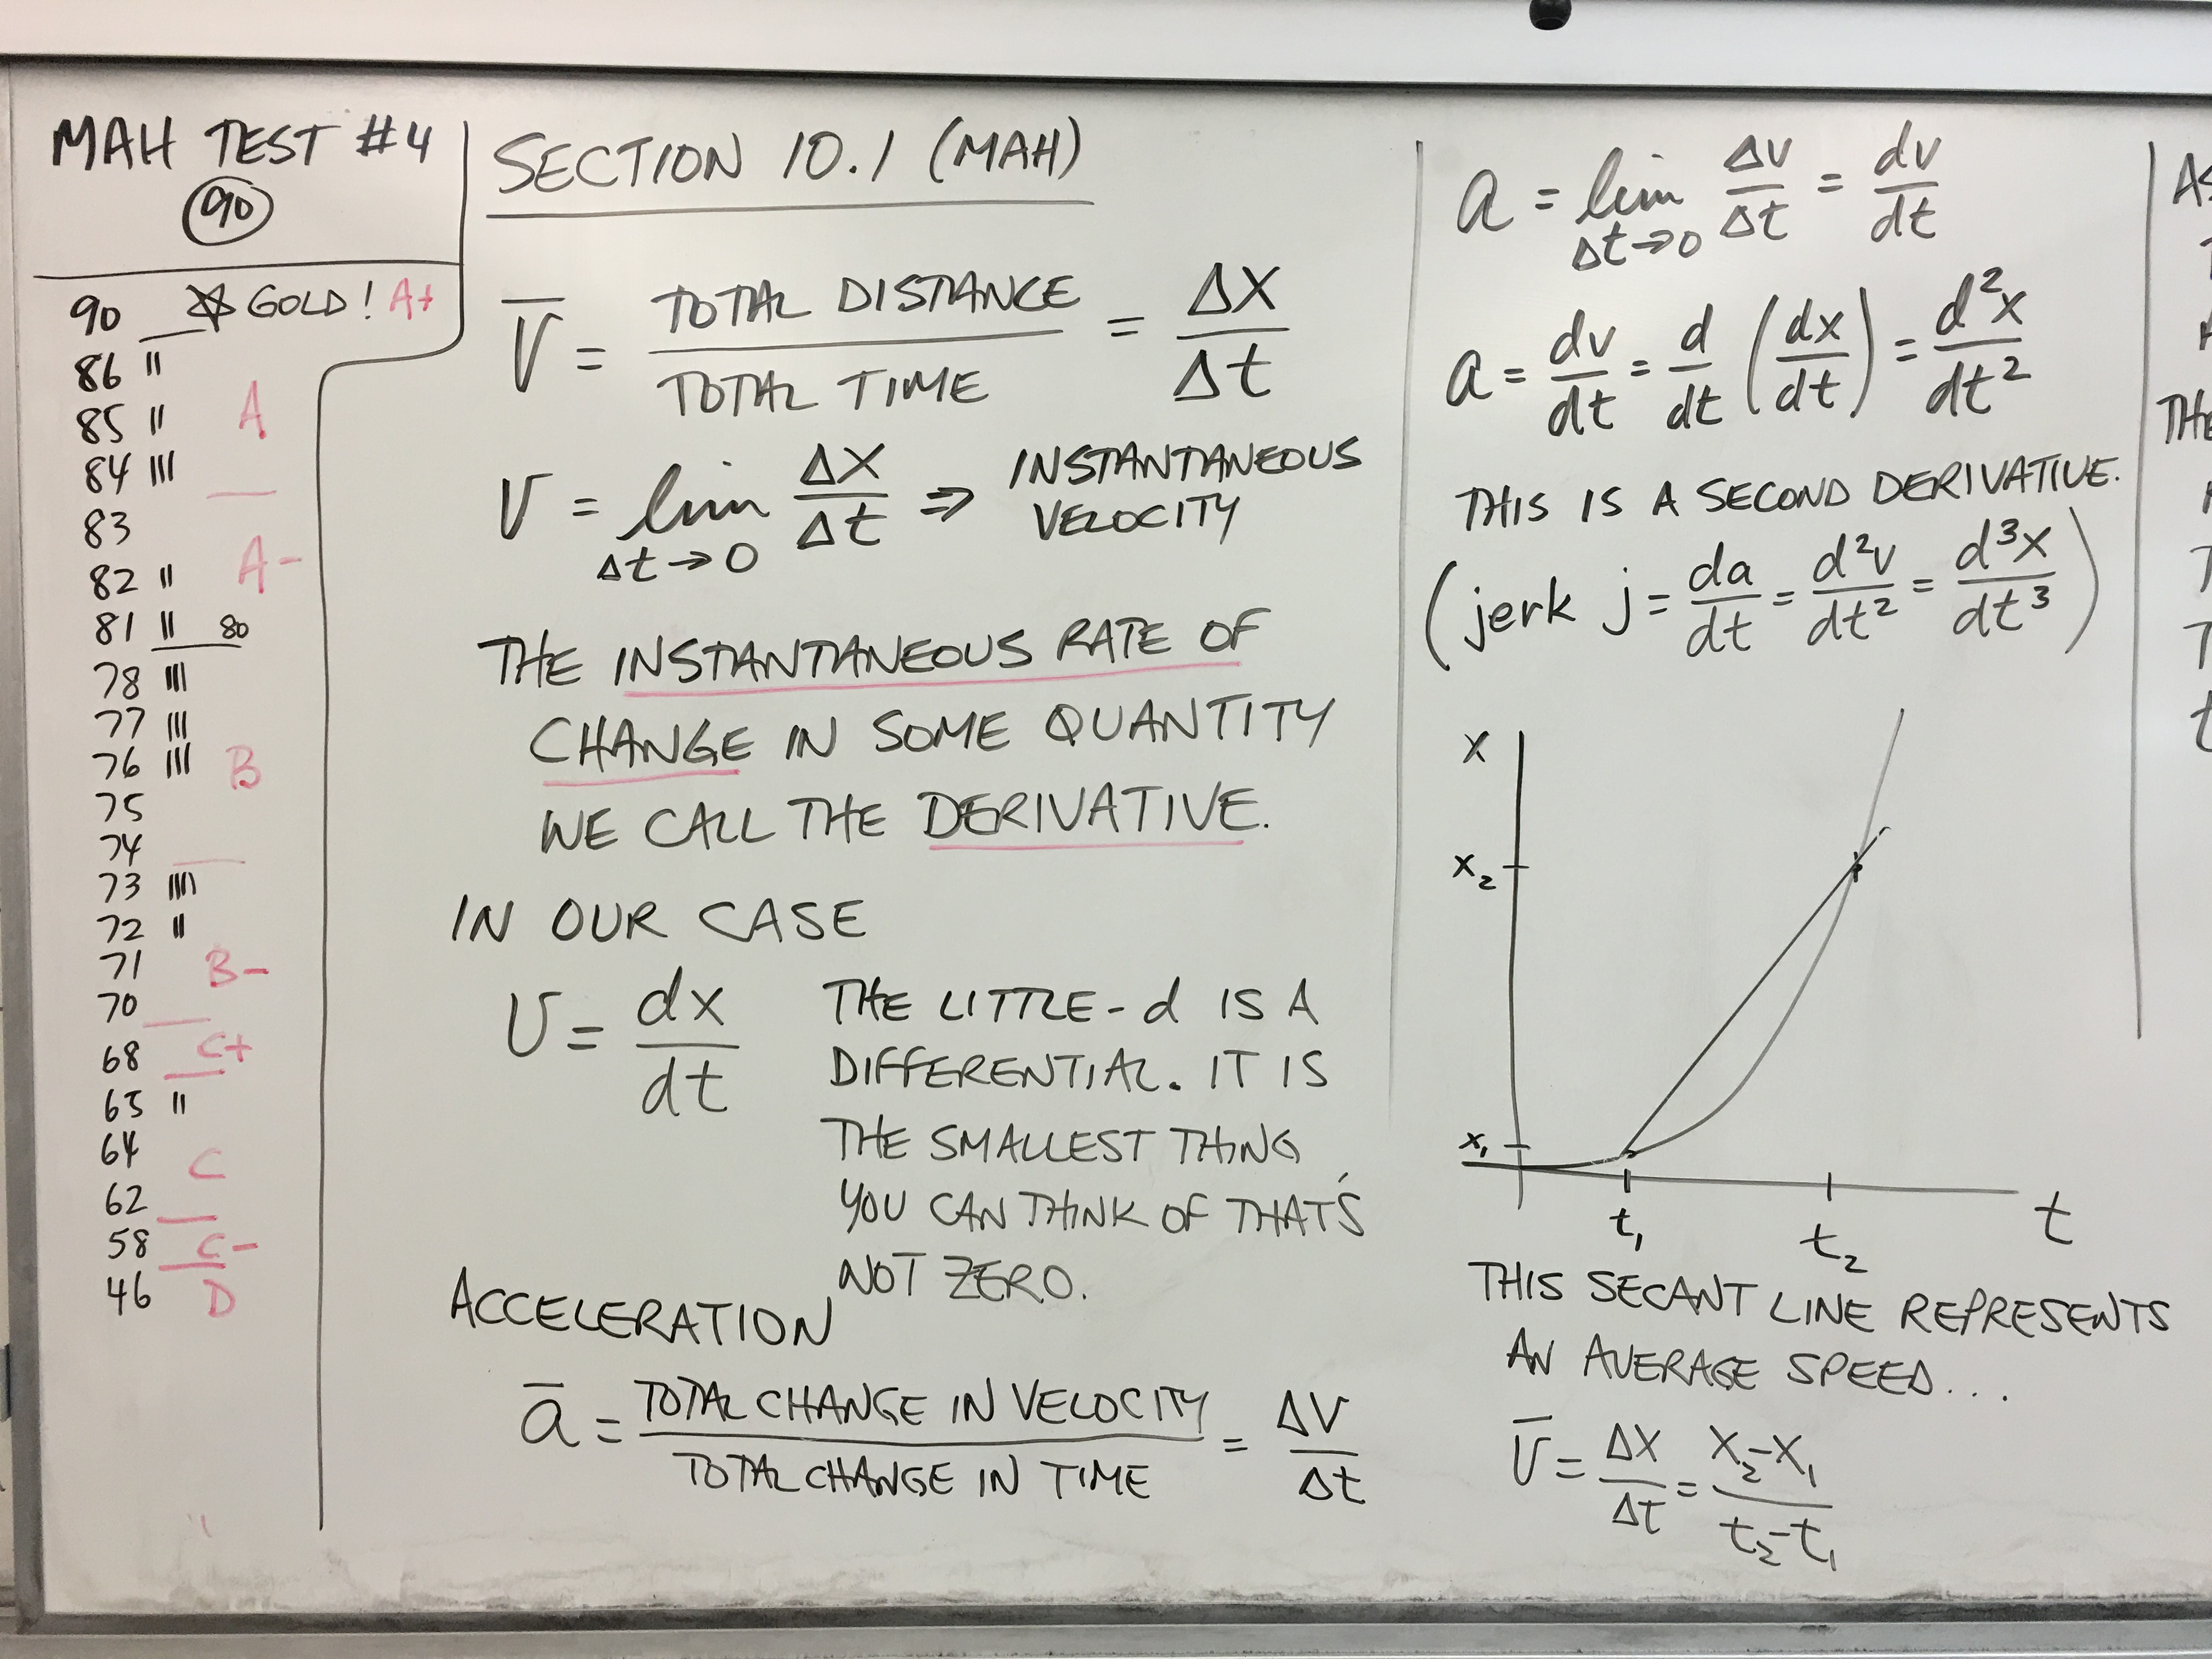 MAH TEST #4
90
90 ☆ GOLD! A+
86 ||
85 || A
84 |||
83
82 || A-
81 || 80
78 |||
77 |||
76 ||| B
75
74
73 ||||
72 ||
71 B-
70
68 C+
65 ||
64 C
62
58 C-
46 D
SECTION 10.1 (MAH)
V̅ = TOTAL DISTANCE / TOTAL TIME = ΔX / Δt
V = lim Δt→0 ΔX / Δt ⇒ INSTANTANEOUS VELOCITY
THE INSTANTANEOUS RATE OF
CHANGE IN SOME QUANTITY
WE CALL THE DERIVATIVE.
IN OUR CASE
V = dx / dt
THE LITTLE-d IS A
DIFFERENTIAL. IT IS
THE SMALLEST THING
YOU CAN THINK OF THAT'S
NOT ZERO.
ACCELERATION
a̅ = TOTAL CHANGE IN VELOCITY / TOTAL CHANGE IN TIME = ΔV / Δt
a = lim Δt→0 ΔV / Δt = dv / dt
a = dv/dt = d/dt (dx/dt) = d²x/dt²
THIS IS A SECOND DERIVATIVE.
(jerk j = da/dt = d²v/dt² = d³x/dt³)
X
X₂
X₁
t₁
t₂
t
THIS SECANT LINE REPRESENTS
AN AVERAGE SPEED...
V̅ = ΔX/Δt = X₂-X₁ / t₂-t₁
AS
THE